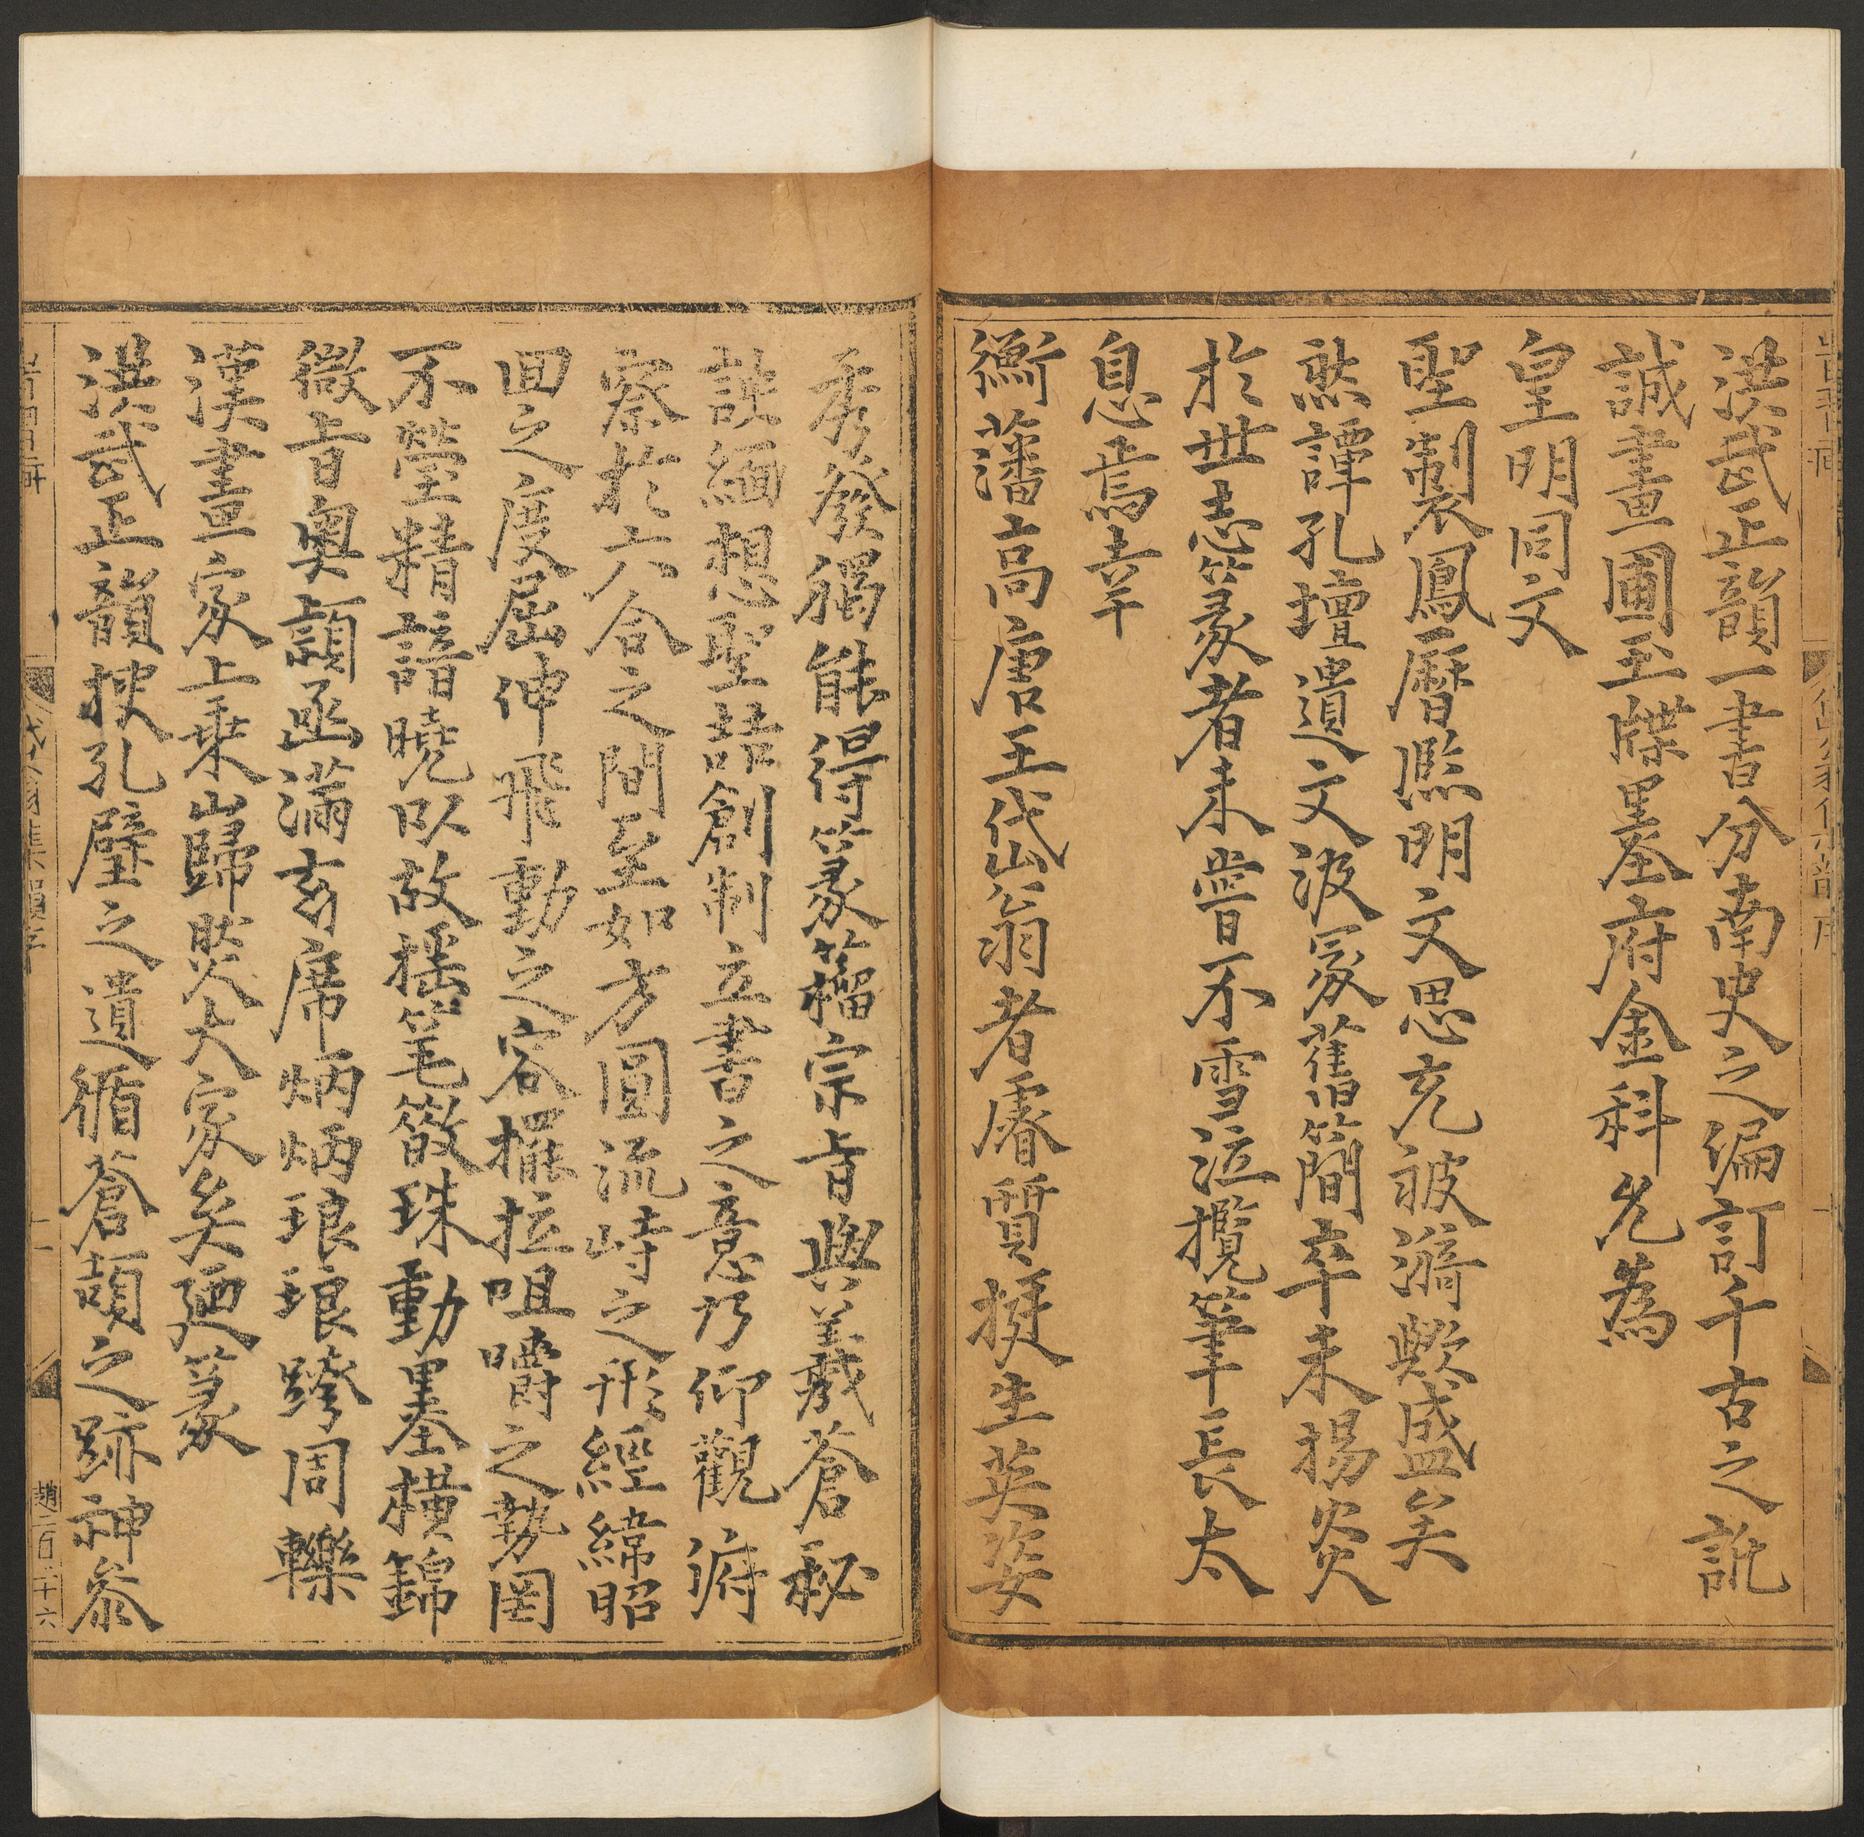 洪武正韻一書分南史之編訂千古之訛
誠畫圃玉牒墨府金科允為
皇明同文
聖製鳳曆熈明文思充被漪歟盛矣
然譚孔壇遺文汲冢舊簡卒未揚炎
於世志篆者未嘗不雪泣攬筆長太
息焉幸
衡藩高唐王岱翁者睿質挺生英姿
秀發獨能得篆籀宗旨與義戴蒼秘
訣緬想聖喆創制立書之意乃仰觀俯
察於六合之間至如方圓流峙之形經緯昭
回之度屈伸飛動之容擺拉咀嚼之勢罔
不瑩精諳曉以故搖笔散珠動墨橫錦
微旨奧頥函滿玄席炳炳琅琅跨周轢
漢畫家上乘巋然大家矣廼篆
洪武正韻搜孔壁之遺循蒼頡之跡神參
趙二百二十六